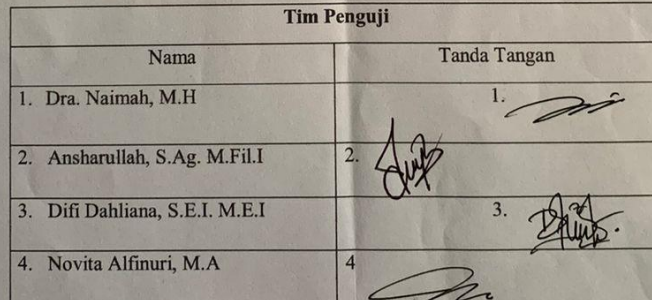 Tim Penguji
Nama Tanda Tangan
1. Dra. Naimah, M.H 1.
2. Ansharullah, S.Ag. M.Fil.I 2.
3. Difi Dahliana, S.E.I. M.E.I 3.
4. Novita Alfinuri, M.A 4